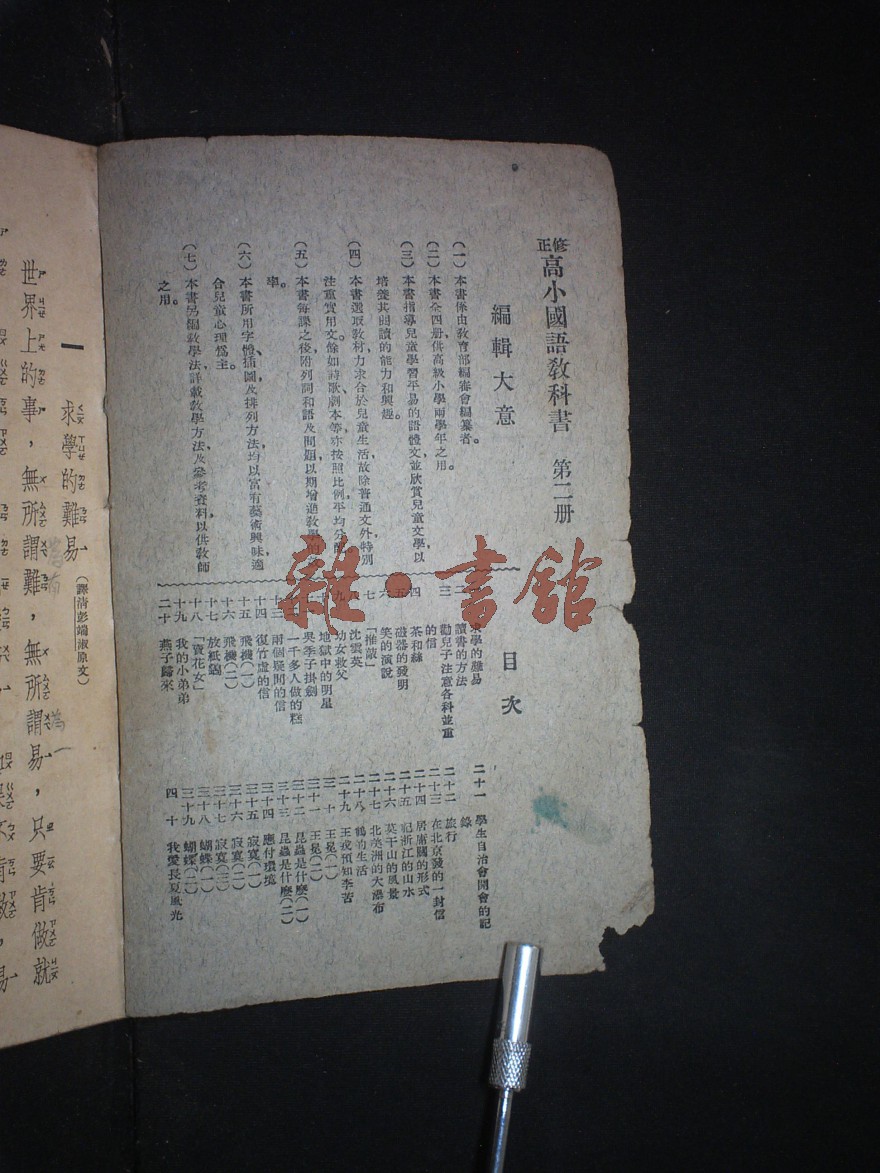 修正高小國語教科書 第二册
編輯大意
(一)本書係由教育部編審會編纂者。
(二)本書全四册,供高級小學兩學年之用。
(三)本書指導兒童學習平易的語體文,並欣賞兒童文學,以
培養其閱讀的能力和興趣。
(四)本書選取教材,力求合於兒童生活,故除普通文外,特別
注重實用文。餘如詩歌、劇本等,亦按照比例平均分配。
(五)本書每課之後,附列詞和語及問題,以期增進教學的
率。
(六)本書所用字體、插圖及排列方法,均以富有藝術興味,適
合兒童心理爲主。
(七)本書另編教學法,詳載教學方法及參考資料,以供教師
之用。
目次
求學的難易
二 讀書的方法
三 勸兒子注意各科並重
的信
四 茶和絲
五 磁器的發明
六 笑的演說
七 「推敲」
沈雲英
九 幼女救父
地獄中的明星
吳季子掛劍
一千多人做的糕
十三 兩個疑問的信
十四 復竹虛的信
十五 飛機(一)
十六 飛機(二)
十七 放紙鷂
十八 「賣花女」
十九 我的小弟弟
二十 燕子歸來
二十一 學生自治會開會的記
錄
二十二 旅行
二十三 在北京發的一封信
二十四 居庸關的形式
二十五 記浙江的山水
二十六 莫干山的風景
二十七 北美洲的大瀑布
二十八 鶴的生活
二十九 王戎預知李苦
三十 王冕(一)
三十一 王冕(二)
三十二 昆蟲是什麼(一)
三十三 昆蟲是什麼(二)
三十四 應付環境
三十五 寂寞(一)
三十六 寂寞(二)
三十七 寂寞(三)
三十八 蝴蝶(一)
三十九 蝴蝶(二)
四十 我愛長夏風光
雜·書館
一 求學的難易(譯清彭端淑原文)
世界上的事,無所謂難,無所謂易,只要肯做,就